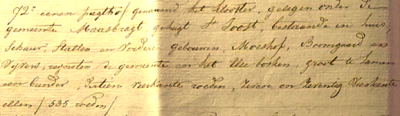 72° eenen pagthof genaamd het Klooster, gelegen onder de
gemeente Maasbragt gehugt St Joost, bestaande in huis,
Schuur, Stallen en verdere gebouwen, Moeshof, Boomgaard en
Vyvers, de gemeente en het Ulerbosken, groot te samen
een bunder, Zestien vierkante roeden, zeven en zeventig Vierkante
ellen / 535 roeden /